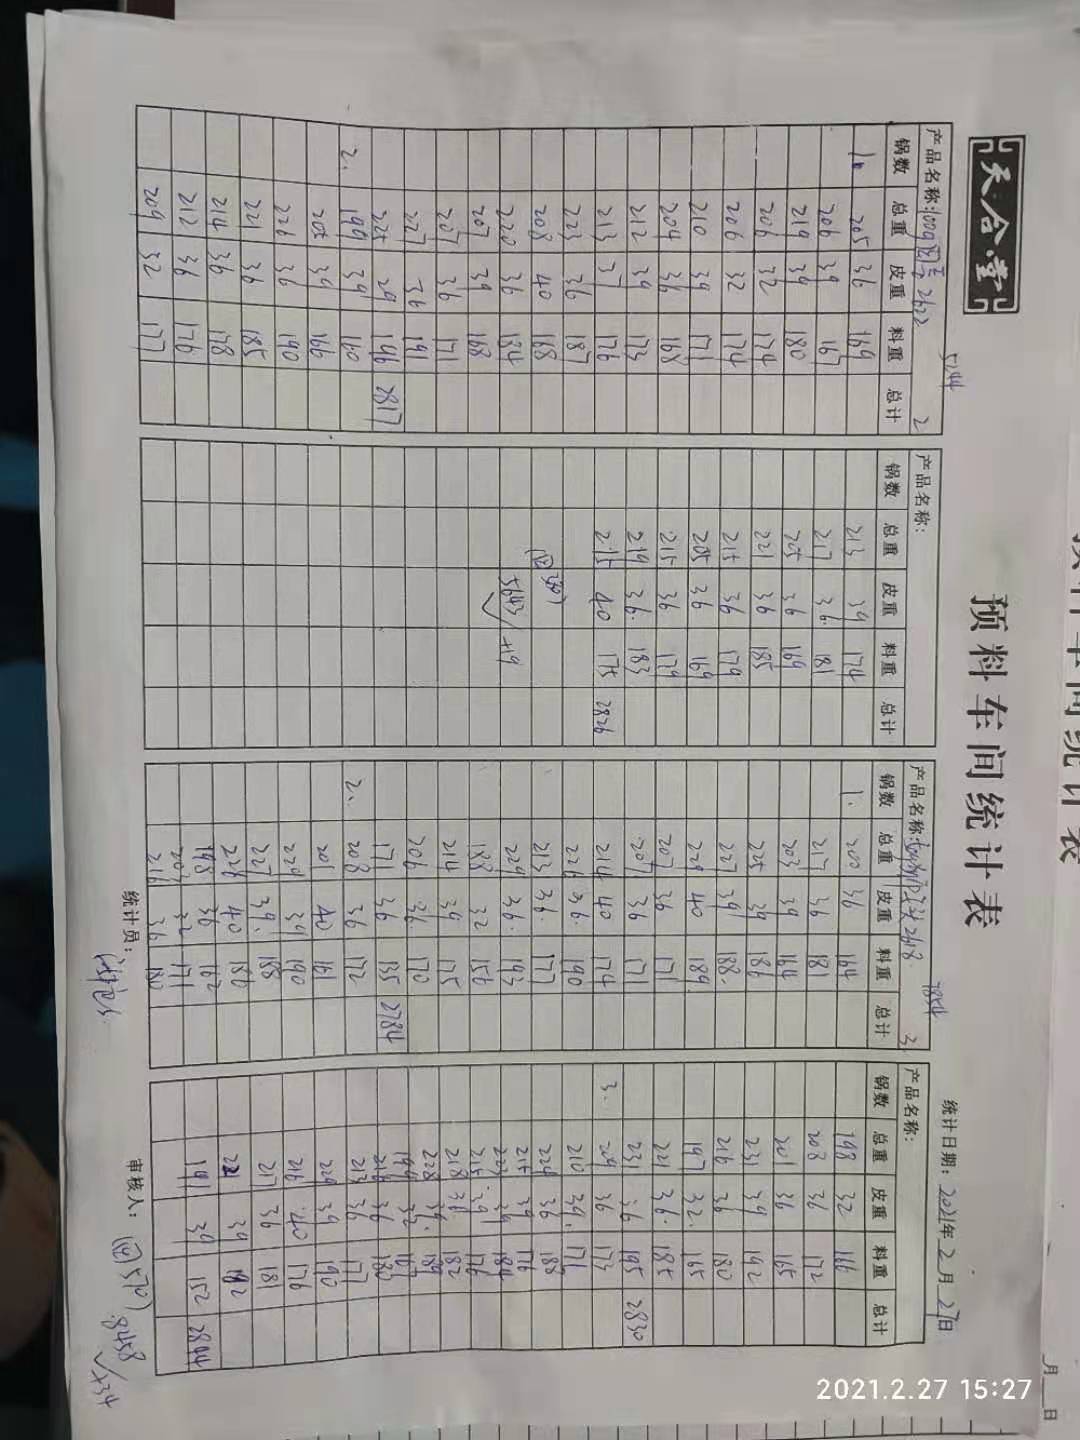 天合堂
预料车间统计表
统计日期：2021年2月27日
5244
产品名称： 2622 2
锅数 总重 皮重 料重 总计
1. 205 36 169
206 39 167
219 39 180
206 32 174
206 32 174
210 39 171
204 36 168
212 39 173
213 37 176
223 36 187
208 40 168
220 36 184
207 39 168
207 36 171
227 36 191
225 29 196 2817
2. 199 39 160
205 39 166
226 36 190
221 36 185
214 36 178
212 36 176
209 32 177
产品名称：
锅数 总重 皮重 料重 总计
213 39 174
217 36 181
205 36 169
221 36 185
215 36 179
205 36 169
215 36 179
219 36 183
215 40 175 2826
5643
7854
产品名称： 2618 3
锅数 总重 皮重 料重 总计
1. 200 36 164
217 36 181
203 39 164
225 39 186
227 39 188
229 40 189
207 36 171
207 36 171
214 40 174
226 36 190
213 36 177
229 36 193
188 32 156
214 39 175
206 36 170
171 36 135 2784
2. 208 36 172
201 40 161
229 39 190
227 39 188
226 40 186
198 36 162
203 32 171
216 36 180
产品名称：
锅数 总重 皮重 料重 总计
198 32 166
208 36 172
201 36 165
231 39 192
216 36 180
197 32 165
221 36 185
231 36 195 2830
3. 209 36 173
210 39 171
224 36 188
215 39 176
223 39 184
215 39 176
218 36 182
228 39 189
199 32 167
216 36 180
213 36 177
229 39 190
216 40 176
217 36 181
221 39 182
191 39 152 2844
统计员：
审核人：
8458
月 日
2021.2.27 15:27